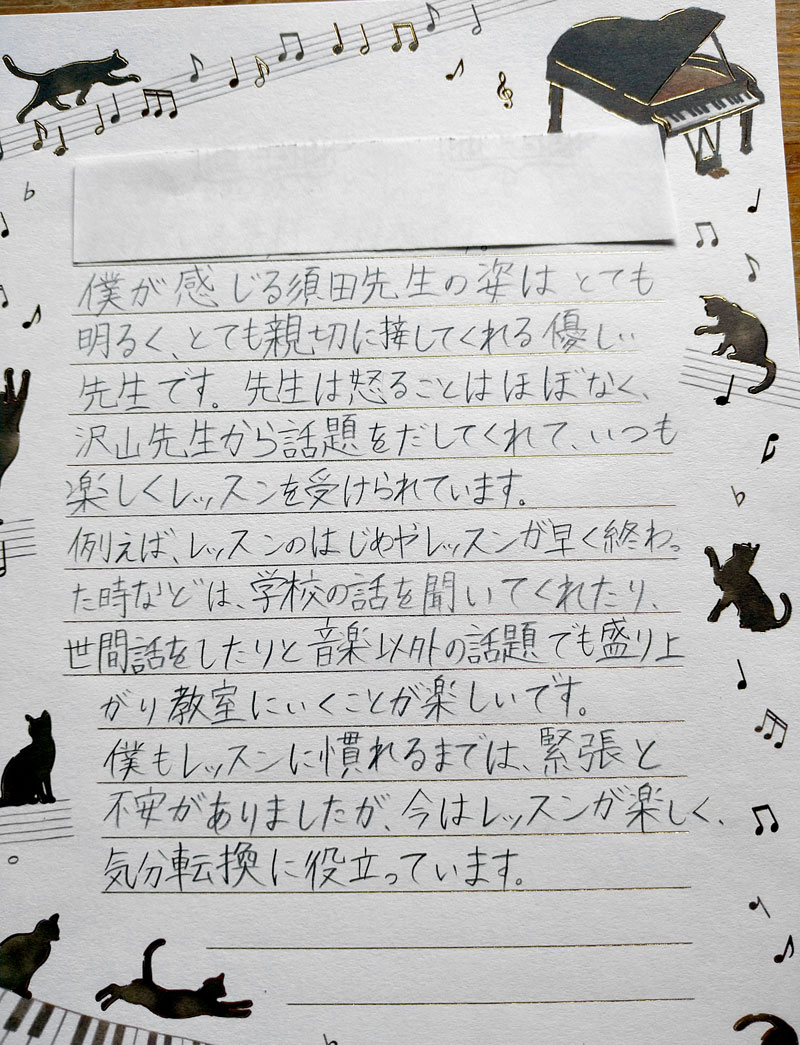 僕が感じる須田先生の姿はとても
明るく、とても親切に接してくれる優しい
先生です。先生は怒ることはほぼなく、
沢山先生から話題をだしてくれて、いつも
楽しくレッスンを受けられています。
例えば、レッスンのはじめやレッスンが早く終わっ
た時などは、学校の話を聞いてくれたり、
世間話をしたりと音楽以外の話題でも盛り上
がり教室にいくことが楽しいです。
僕もレッスンに慣れるまでは、緊張と
不安がありましたが、今はレッスンが楽しく、
気分転換に役立っています。